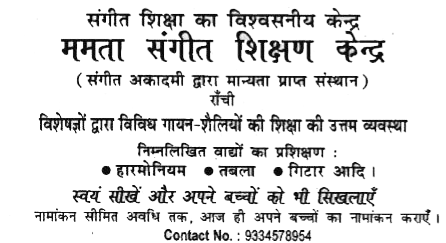 संगीत शिक्षा का विश्वसनीय केन्द्र
ममता संगीत शिक्षण केन्द्र
(संगीत अकादमी द्वारा मान्यता प्राप्त संस्थान)
राँची
विशेषज्ञों द्वारा विविध गायन-शैलियों की शिक्षा की उत्तम व्यवस्था
निम्नलिखित वाद्यों का प्रशिक्षण :
● हारमोनियम ● तबला ● गिटार आदि ।
स्वयं सीखें और अपने बच्चों को भी सिखलाएँ
नामांकन सीमित अवधि तक, आज ही अपने बच्चों का नामांकन कराएँ ।
Contact No. : 9334578954